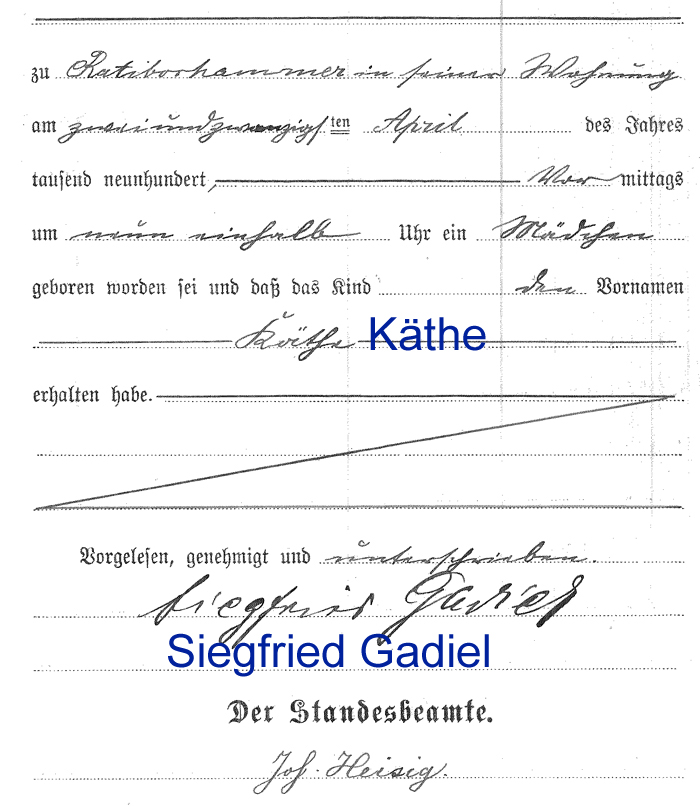 zu Ratiborhammer in seiner Wohnung
am zweiundzwanzigsten April des Jahres
tausend neunhundert, Vor mittags
um neun einhalb Uhr ein Mädchen
geboren worden sei und daß das Kind den Vornamen
Käthe Käthe
erhalten habe.
Vorgelesen, genehmigt und unterschrieben.
Siegfried Gadiel
Siegfried Gadiel
Der Standesbeamte.
Joh. Heisig.